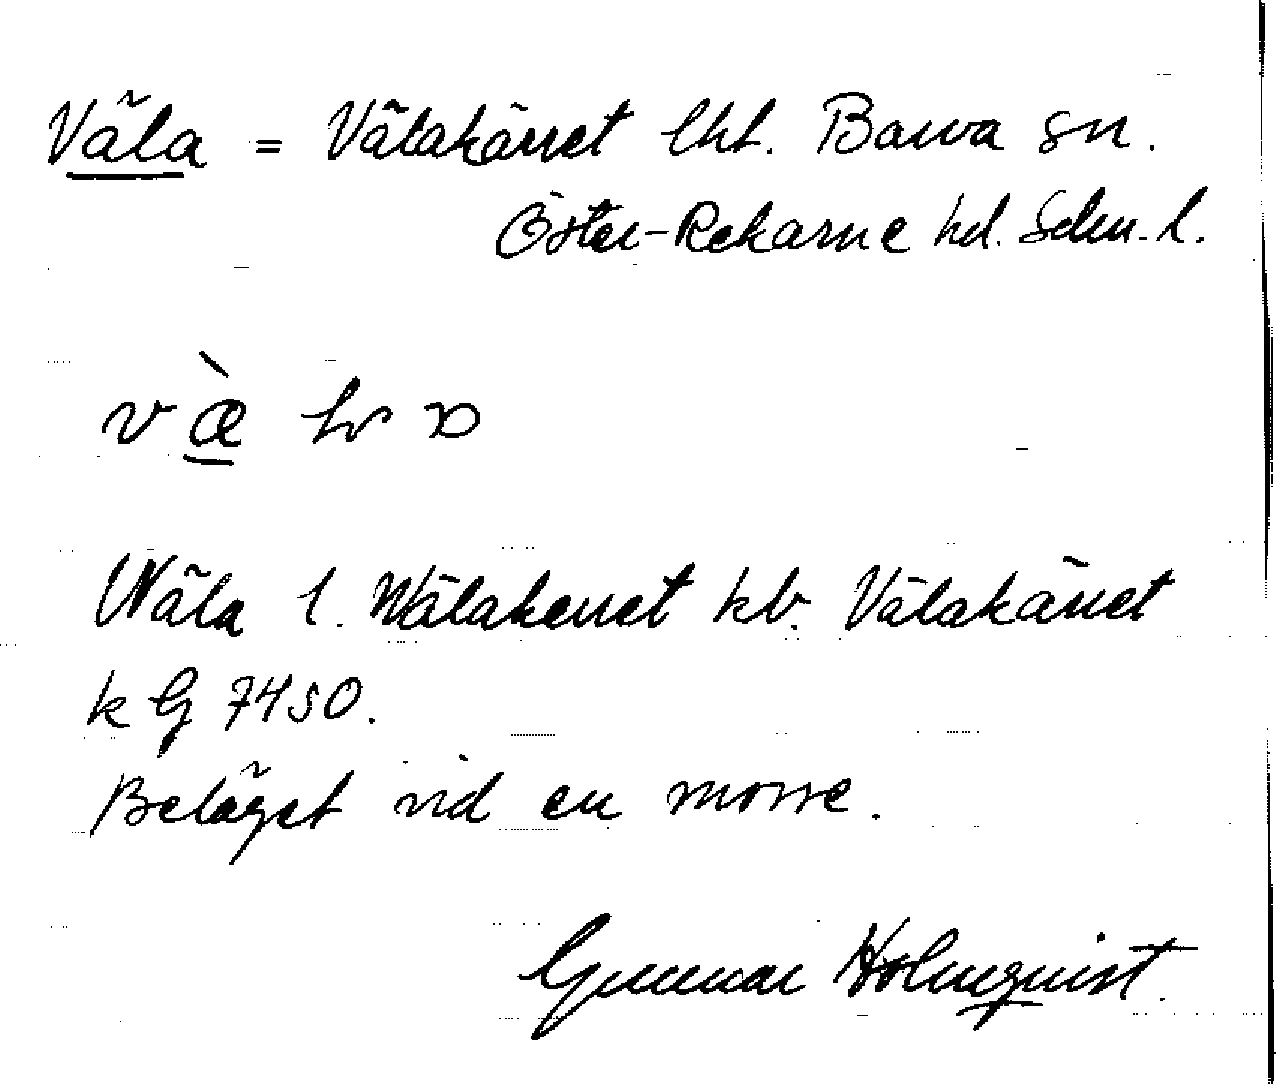 Väla = Välakärret lht. Barva sn.
Öster-Rekarne hd. Sdm. l.
v æ̀
Wäla l. Wälakerret kb. Välakärret
k G 7450.
Beläget vid en mosse.
Gunnar Holmquist.